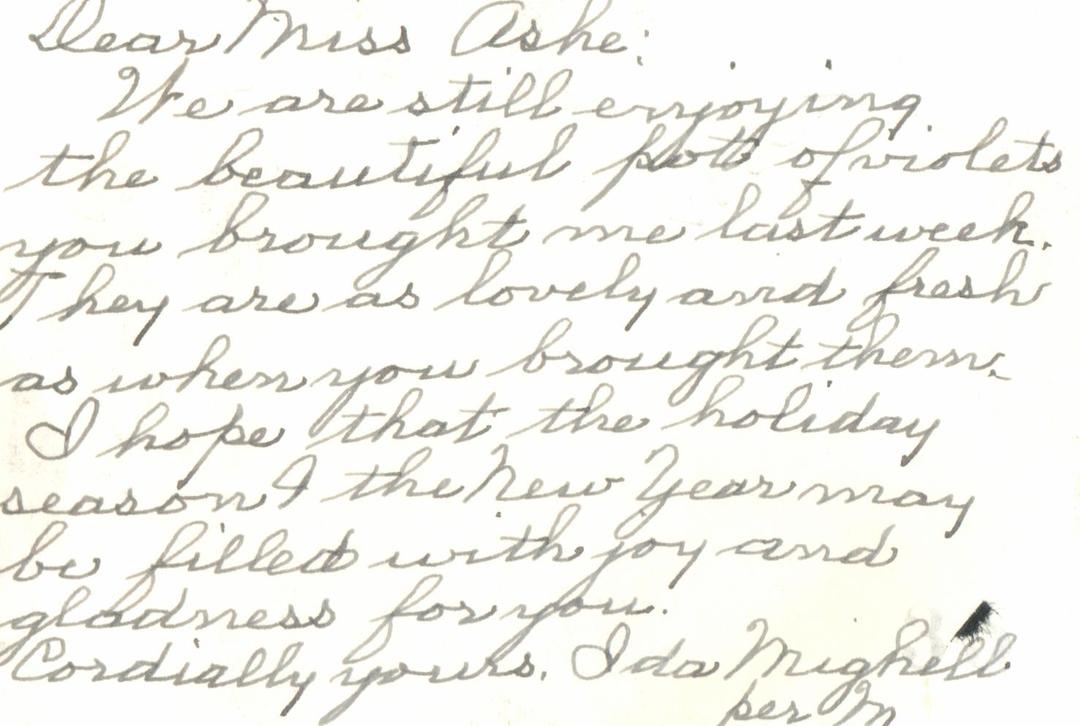 Dear Miss Ashe:
We are still enjoying
the beautiful pot of violets
you brought me last week.
They are as lovely and fresh
as when you brought them.
I hope that the holiday
season & the New Year may
be filled with joy and
gladness for you.
Cordially yours, Ida Mighell
per M